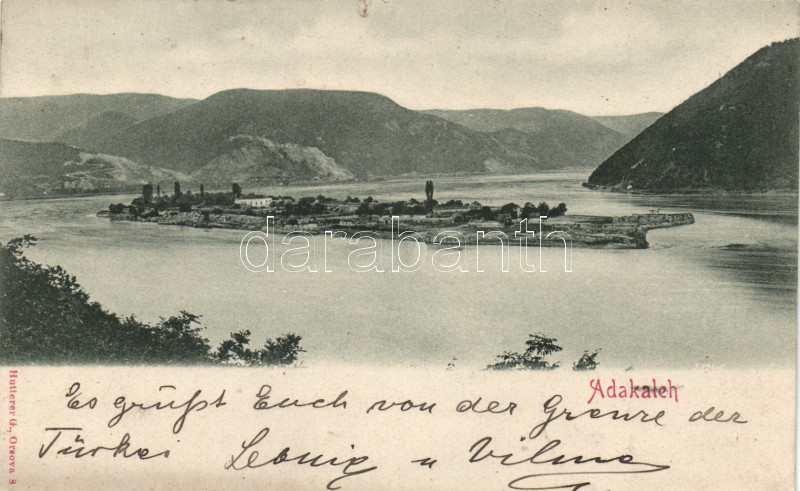 darabanth
Adakaleh
Hutterer G., Orsova 8
Es grüßt Euch von der Grenze der
Türkei Leбnig u Vilma